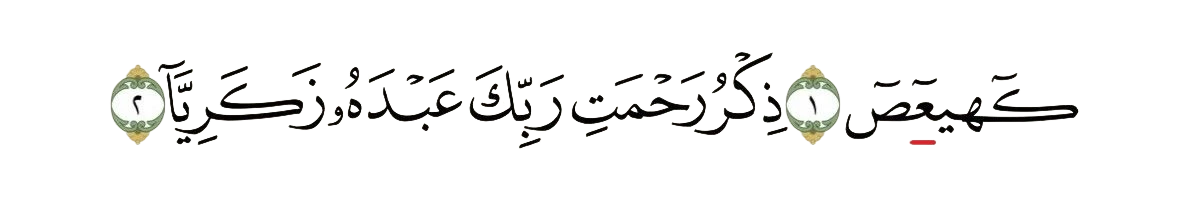 كٓهيعٓصٓ ١ ذِكْرُ رَحْمَتِ رَبِّكَ عَبْدَهُۥ زَكَرِيَّآ ٢